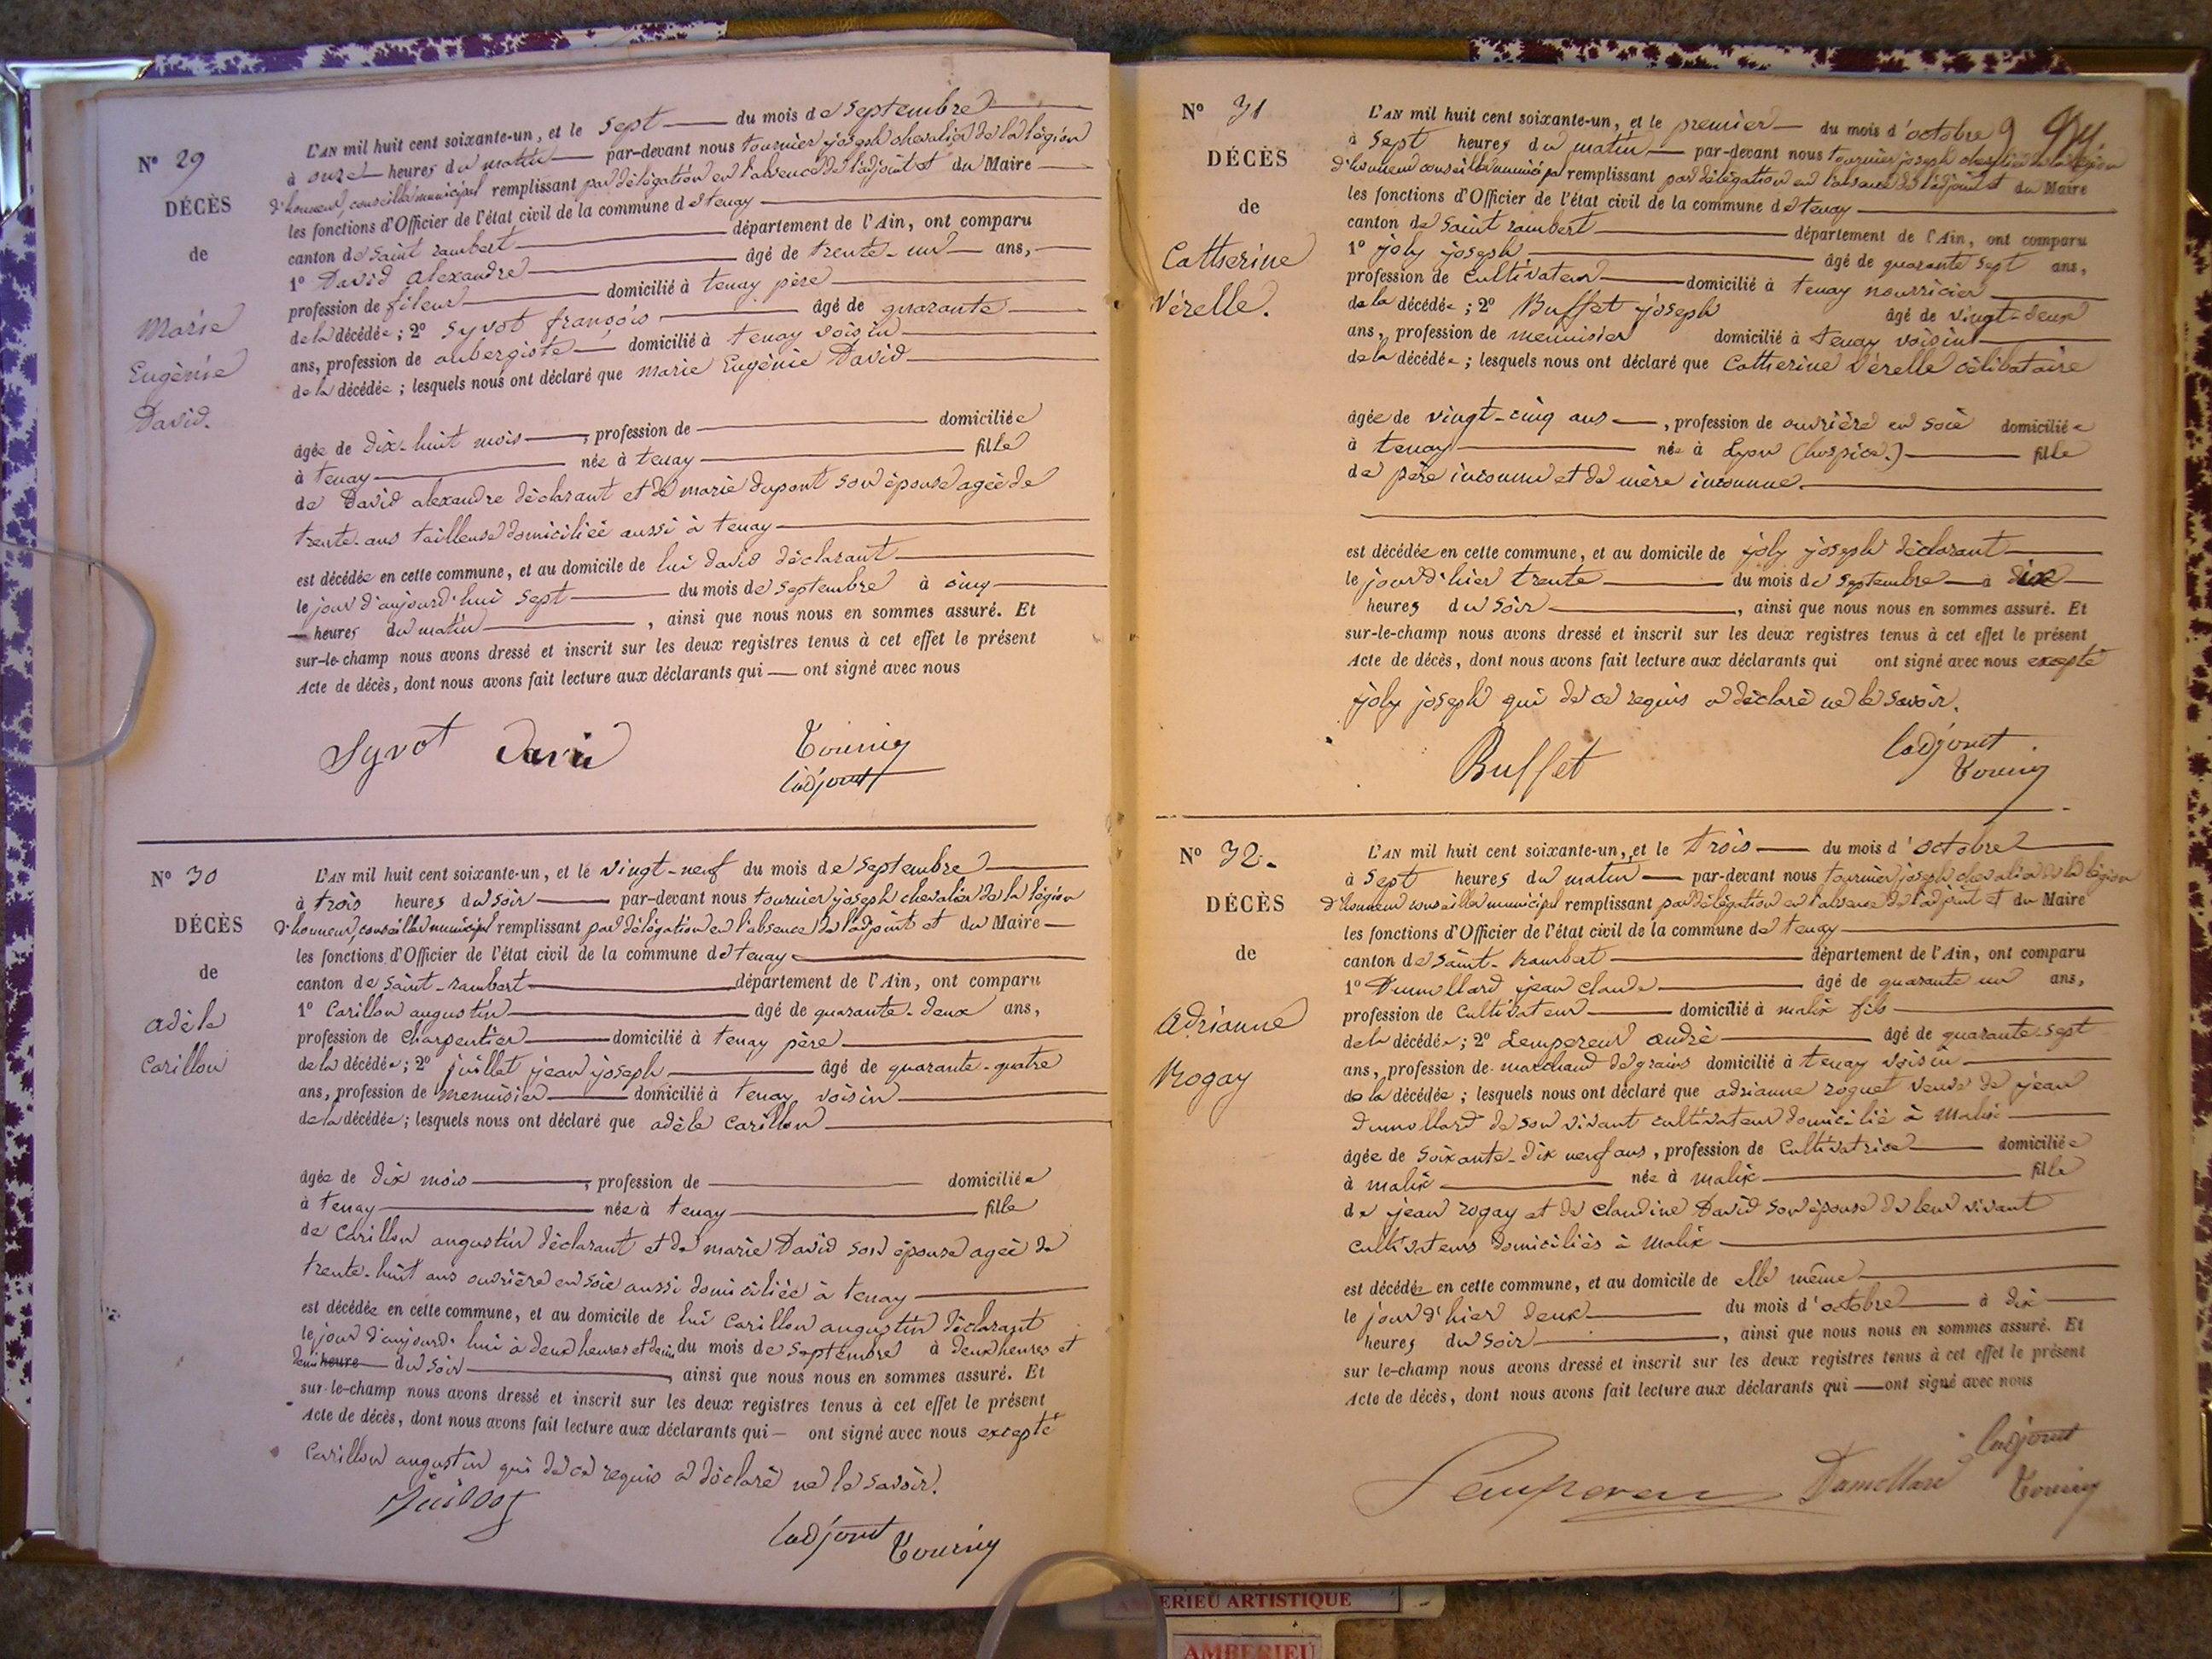 Nº 29
DÉCÈS
de
Marie
Eugénie
David.
L'AN mil huit cent soixante-un, et le sept du mois de septembre
à onze heures du matin par-devant nous tournier joseph chevalier de la légion
d'honneur, conseiller municipal remplissant par délégation en l'absence de l'adjoint et du Maire
les fonctions d'Officier de l'état civil de la commune de tenay
canton de saint rambert département de l'Ain, ont comparu
1º David alexandre âgé de trente-un ans,
profession de fileur domicilié à tenay père
de la décédée; 2º Syvot françois âgé de quarante
ans, profession de aubergiste domicilié à tenay voisin
de la décédée; lesquels nous ont déclaré que marie Eugénie David
âgée de dix-huit mois, profession de domiciliée
à tenay née à tenay fille
de David alexandre déclarant et de marie dupont son épouse agée de
trente-ans tailleuse domiciliée aussi à tenay
est décédée en cette commune, et au domicile de lui david déclarant
le jour d'aujourd'hui sept du mois de septembre à cinq
heures du matin, ainsi que nous nous en sommes assuré. Et
sur-le-champ nous avons dressé et inscrit sur les deux registres tenus à cet effet le présent
Acte de décès, dont nous avons fait lecture aux déclarants qui ont signé avec nous
Syvot David Tournier
ladjoint
Nº 30
DÉCÈS
de
adèle
Carillon
L'AN mil huit cent soixante-un, et le vingt-neuf du mois de septembre
à trois heures du soir par-devant nous tournier joseph chevalier de la légion
d'honneur, conseiller municipal remplissant par délégation en l'absence de l'adjoint et du Maire
les fonctions d'Officier de l'état civil de la commune de tenay
canton de saint-rambert département de l'Ain, ont comparu
1º Carillon augustin âgé de quarante-deux ans,
profession de charpentier domicilié à tenay père
de la décédée; 2º juillet jean joseph âgé de quarante-quatre
ans, profession de menuisier domicilié à tenay voisin
de la décédée; lesquels nous ont déclaré que adèle Carillon
âgée de dix mois, profession de domiciliée
à tenay née à tenay fille
de Carillon augustin déclarant et de marie David son épouse agée de
trente-huit ans ouvrière en soie aussi domiciliée à tenay
est décédée en cette commune, et au domicile de lui Carillon augustin déclarant
le jour d'aujourd'hui à deux heures et demie du mois de septembre à deux heures et
demi heure du soir, ainsi que nous nous en sommes assuré. Et
sur-le-champ nous avons dressé et inscrit sur les deux registres tenus à cet effet le présent
Acte de décès, dont nous avons fait lecture aux déclarants qui ont signé avec nous excepté
Carillon augustin qui de ce requis a déclaré ne le savoir.
Juillet
ladjoint Tournier
Nº 31
DÉCÈS
de
Catherine
Vérelle.
L'AN mil huit cent soixante-un, et le premier du mois d'octobre
à sept heures du matin par-devant nous tournier joseph chevalier de la légion
d'honneur conseiller municipal remplissant par délégation en l'absence de l'adjoint et du Maire
les fonctions d'Officier de l'état civil de la commune de tenay
canton de saint rambert département de l'Ain, ont comparu
1º joly joseph âgé de quarante sept ans,
profession de cultivateur domicilié à tenay nourricier
de la décédée; 2º Buffet joseph âgé de vingt-deux
ans, profession de menuisier domicilié à tenay voisin
de la décédée; lesquels nous ont déclaré que Catherine Vérelle célibataire
âgée de vingt-cinq ans, profession de ouvrière en soie domiciliée
à tenay née à Lyon (hospice.) fille
de père inconnu et de mère inconnue.
est décédée en cette commune, et au domicile de joly joseph déclarant
le jour d'hier trente du mois de septembre à dix
heures du soir, ainsi que nous nous en sommes assuré. Et
sur-le-champ nous avons dressé et inscrit sur les deux registres tenus à cet effet le présent
Acte de décès, dont nous avons fait lecture aux déclarants qui ont signé avec nous excepté
joly joseph qui de ce requis a déclaré ne le savoir.
Buffet ladjoint
Tournier
Nº 32
DÉCÈS
de
Adrianne
Rogay
L'AN mil huit cent soixante-un, et le trois du mois d'octobre
à sept heures du matin par-devant nous tournier joseph chevalier de la légion
d'honneur conseiller municipal remplissant par délégation en l'absence de l'adjoint et du Maire
les fonctions d'Officier de l'état civil de la commune de tenay
canton de saint-rambert département de l'Ain, ont comparu
1º Dumollard jean claude âgé de quarante un ans,
profession de cultivateur domicilié à malix fils
de la décédée; 2º Lempereur andré âgé de quarante-sept
ans, profession de marchand de grains domicilié à tenay voisin
de la décédée; lesquels nous ont déclaré que adrianne roguet veuve de jean
dumollard de son vivant cultivateur domicilié à malix
âgée de soixante-dix neuf ans, profession de cultivatrice domiciliée
à malix née à malix fille
de jean rogay et de claudine David son épouse de leur vivant
cultivateurs domiciliés à malix
est décédée en cette commune, et au domicile de elle même
le jour d'hier deux du mois d'octobre à dix
heures du soir, ainsi que nous nous en sommes assuré. Et
sur le-champ nous avons dressé et inscrit sur les deux registres tenus à cet effet le présent
Acte de décès, dont nous avons fait lecture aux déclarants qui ont signé avec nous
Lempereur Dumollard ladjoint
Tournier
AMBERIEU ARTISTIQUE
AMBERIEU